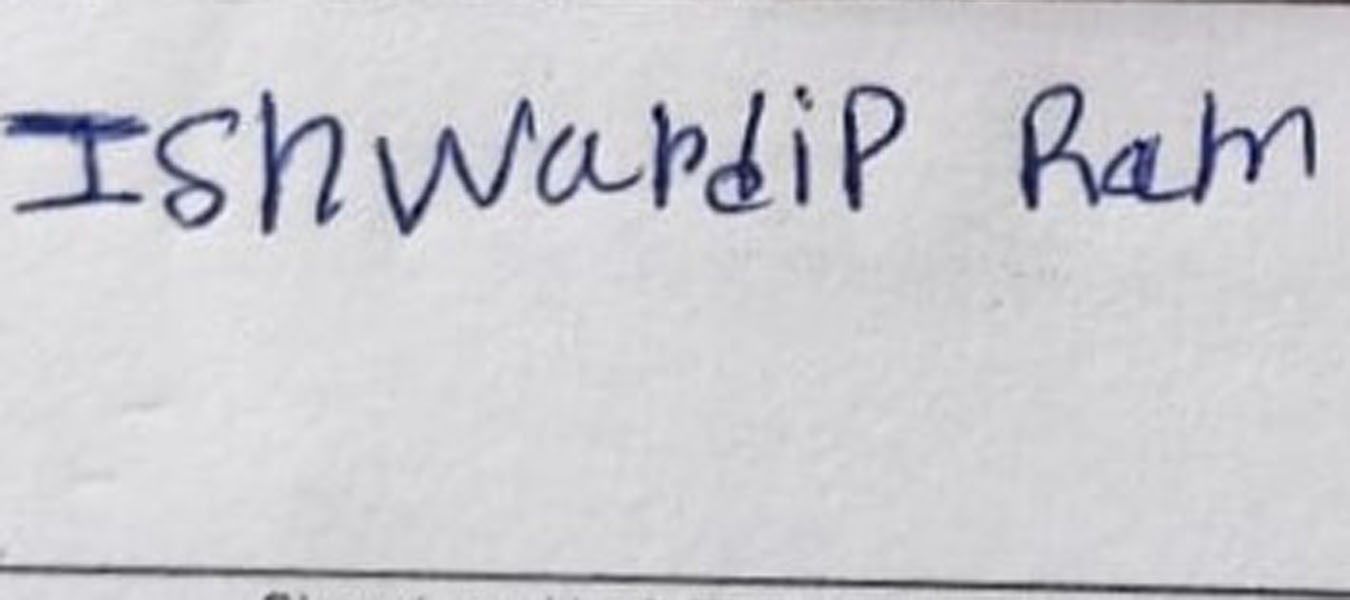 Ishwardip Ram